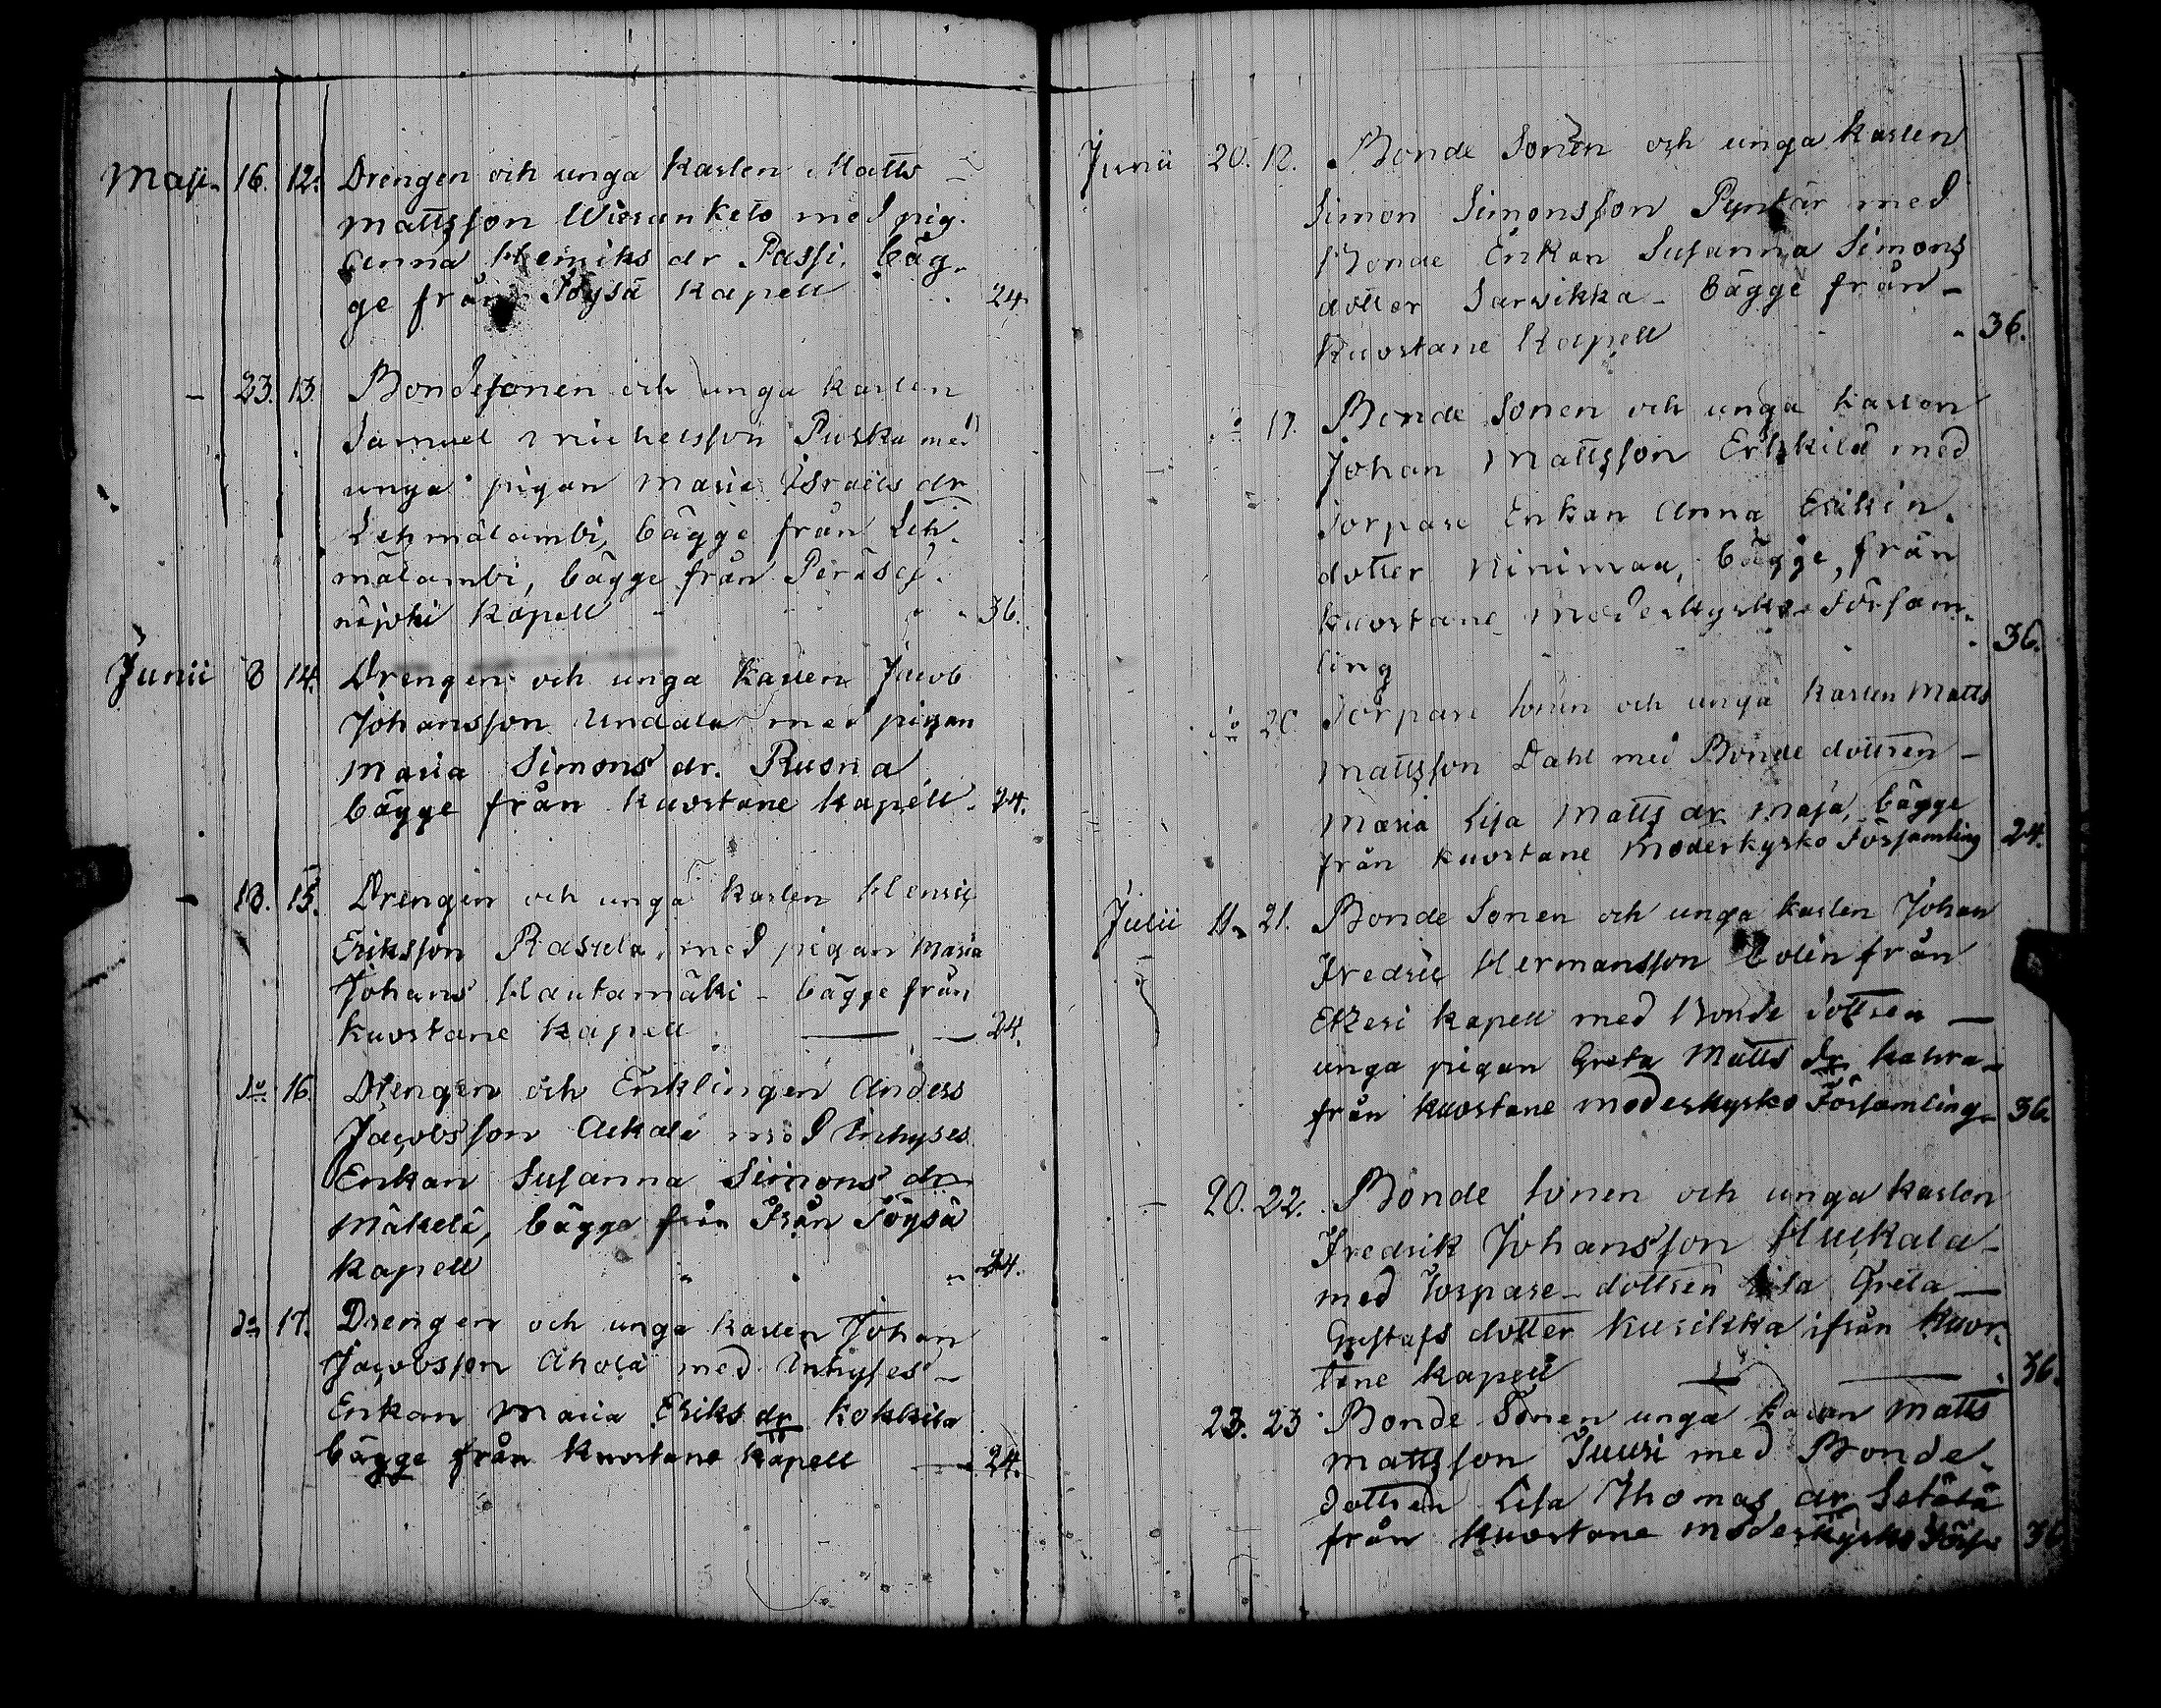 Maji 16. 12. Drengen och unga karlen Matts
Mattsson Wiesunketo med pig.
Anna Henriks dr Passi, bäg-
ge från Töysä Kapell 24.
- 23. 13. Bondesonen och unga karlen
Samuel Michelsson Puska med
unga pigan Maria Israels dr
Lehmälambi, bägge från Leh-
mälambi, bägge från Peräsej-
näjoki Kapell 36.
Junii 8 14. Drengen och unga karlen Jacob
Johansson Undala med pigan
Maria Simons dr. Ruona
bägge från Kuortane kapell. 24.
- 13. 15. Drengen och unga karlen Henric
Eriksson Rasula, med pigan Maria
Johans Hautamäki - bägge från
Kuortane Kapell 24.
do 16. Drengen och Enklingen Anders
Jacobsson Ackola med Inhyses
Enkan Susanna Simons dr
Mäkelä, bägge från Från Töysä
Kapell 24.
do 17. Drengen och unga karlen Johan
Jacobsson Ahola med Inhyses -
Enkan Maria Eriks dr Kokkila
bägge från Kuortane Kapell 24.
Junii 20. 18. Bonde Sonen och unga karlen
Simon Simonsson Pyntär med
Bonde Enkan Susanna Simons
dotter Sarvikka - bägge från -
Kuortane Kapell 36.
do 19. Bonde Sonen och unga karlen
Johan Mattsson Erkkilä med
Torpare Enkan Anna Erikin
dotter Niinimaa, bägge, från
Kuortane moderkyrko Försam-
ling 36.
do 20. Torpare Sonen och unga karlen Matts
Mattsson Dahl med Bonde dottren -
Maria Lisa Matts dr Maja, bägge
från Kuortane Moderkyrko Församling 24.
Julii 11. 21. Bonde Sonen och unga karlen Johan
Fredric Hermansson från
Etzeri kapell med Bonde dottren -
unga pigan Greta Matts dr Kahra -
från Kuortane moderkyrko Församling - 36.
- 20. 22. Bonde Sonen och unga karlen
Fredrik Johansson Huckala -
med Torpare - dottren Lisa Greta -
Gustafs dotter Kusikka ifrån Kuor-
tane kapell 36.
23. 23 Bonde Sonen unga karlen Matts
Mattsson Juusi med Bonde-
dottren Lisa Thomas dr Setälä
från Kuortane moderkyrko Förs 36